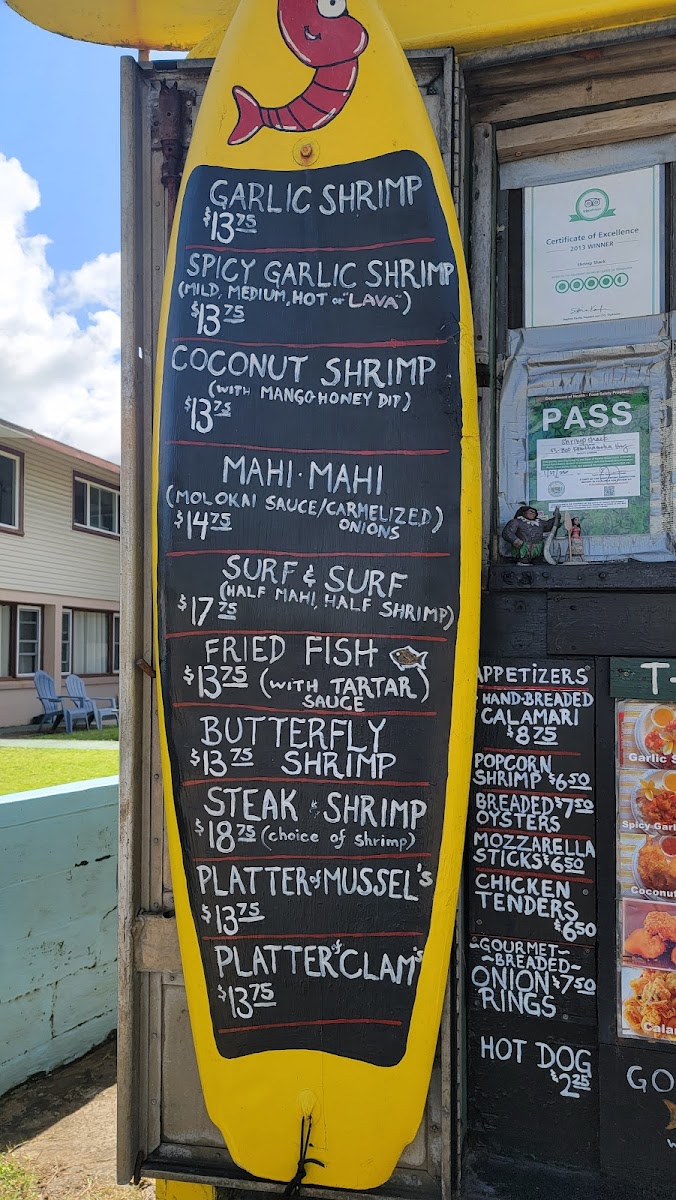 GARLIC SHRIMP
$13.75
SPICY GARLIC SHRIMP
(MILD, MEDIUM, HOT or "LAVA")
$13.75
COCONUT SHRIMP
(WITH MANGO-HONEY DIT)
$13.75
MAHI-MAHI
(MOLOKAI SAUCE/CARMELIZED
ONIONS)
$14.75
SURF & SURF
(HALF MAHI, HALF SHRIMP)
$17.75
FRIED FISH
$13.75 (WITH TARTAR
SAUCE)
BUTTERFLY
$13.75 SHRIMP
STEAK & SHRIMP
$18.75 (choice of shrimp)
PLATTER of MUSSEL'S
$13.75
PLATTER of CLAM'S
$13.75
Certificate of Excellence
2013 WINNER
Shrimp Shack
Department of Health - Food Safety Program
PASS
APPETIZERS
HAND-BREADED
CALAMARI
$8.75
POPCORN
SHRIMP $6.50
BREADED $7.50
OYSTERS
MOZZARELLA
STICKS $6.50
CHICKEN
TENDERS
$6.50
~GOURMET~
~BREADED~
ONION $7.50
RINGS
HOT DOG
$2.25
T-
Garlic S
Spicy Garl
Coconut
Calam
GO